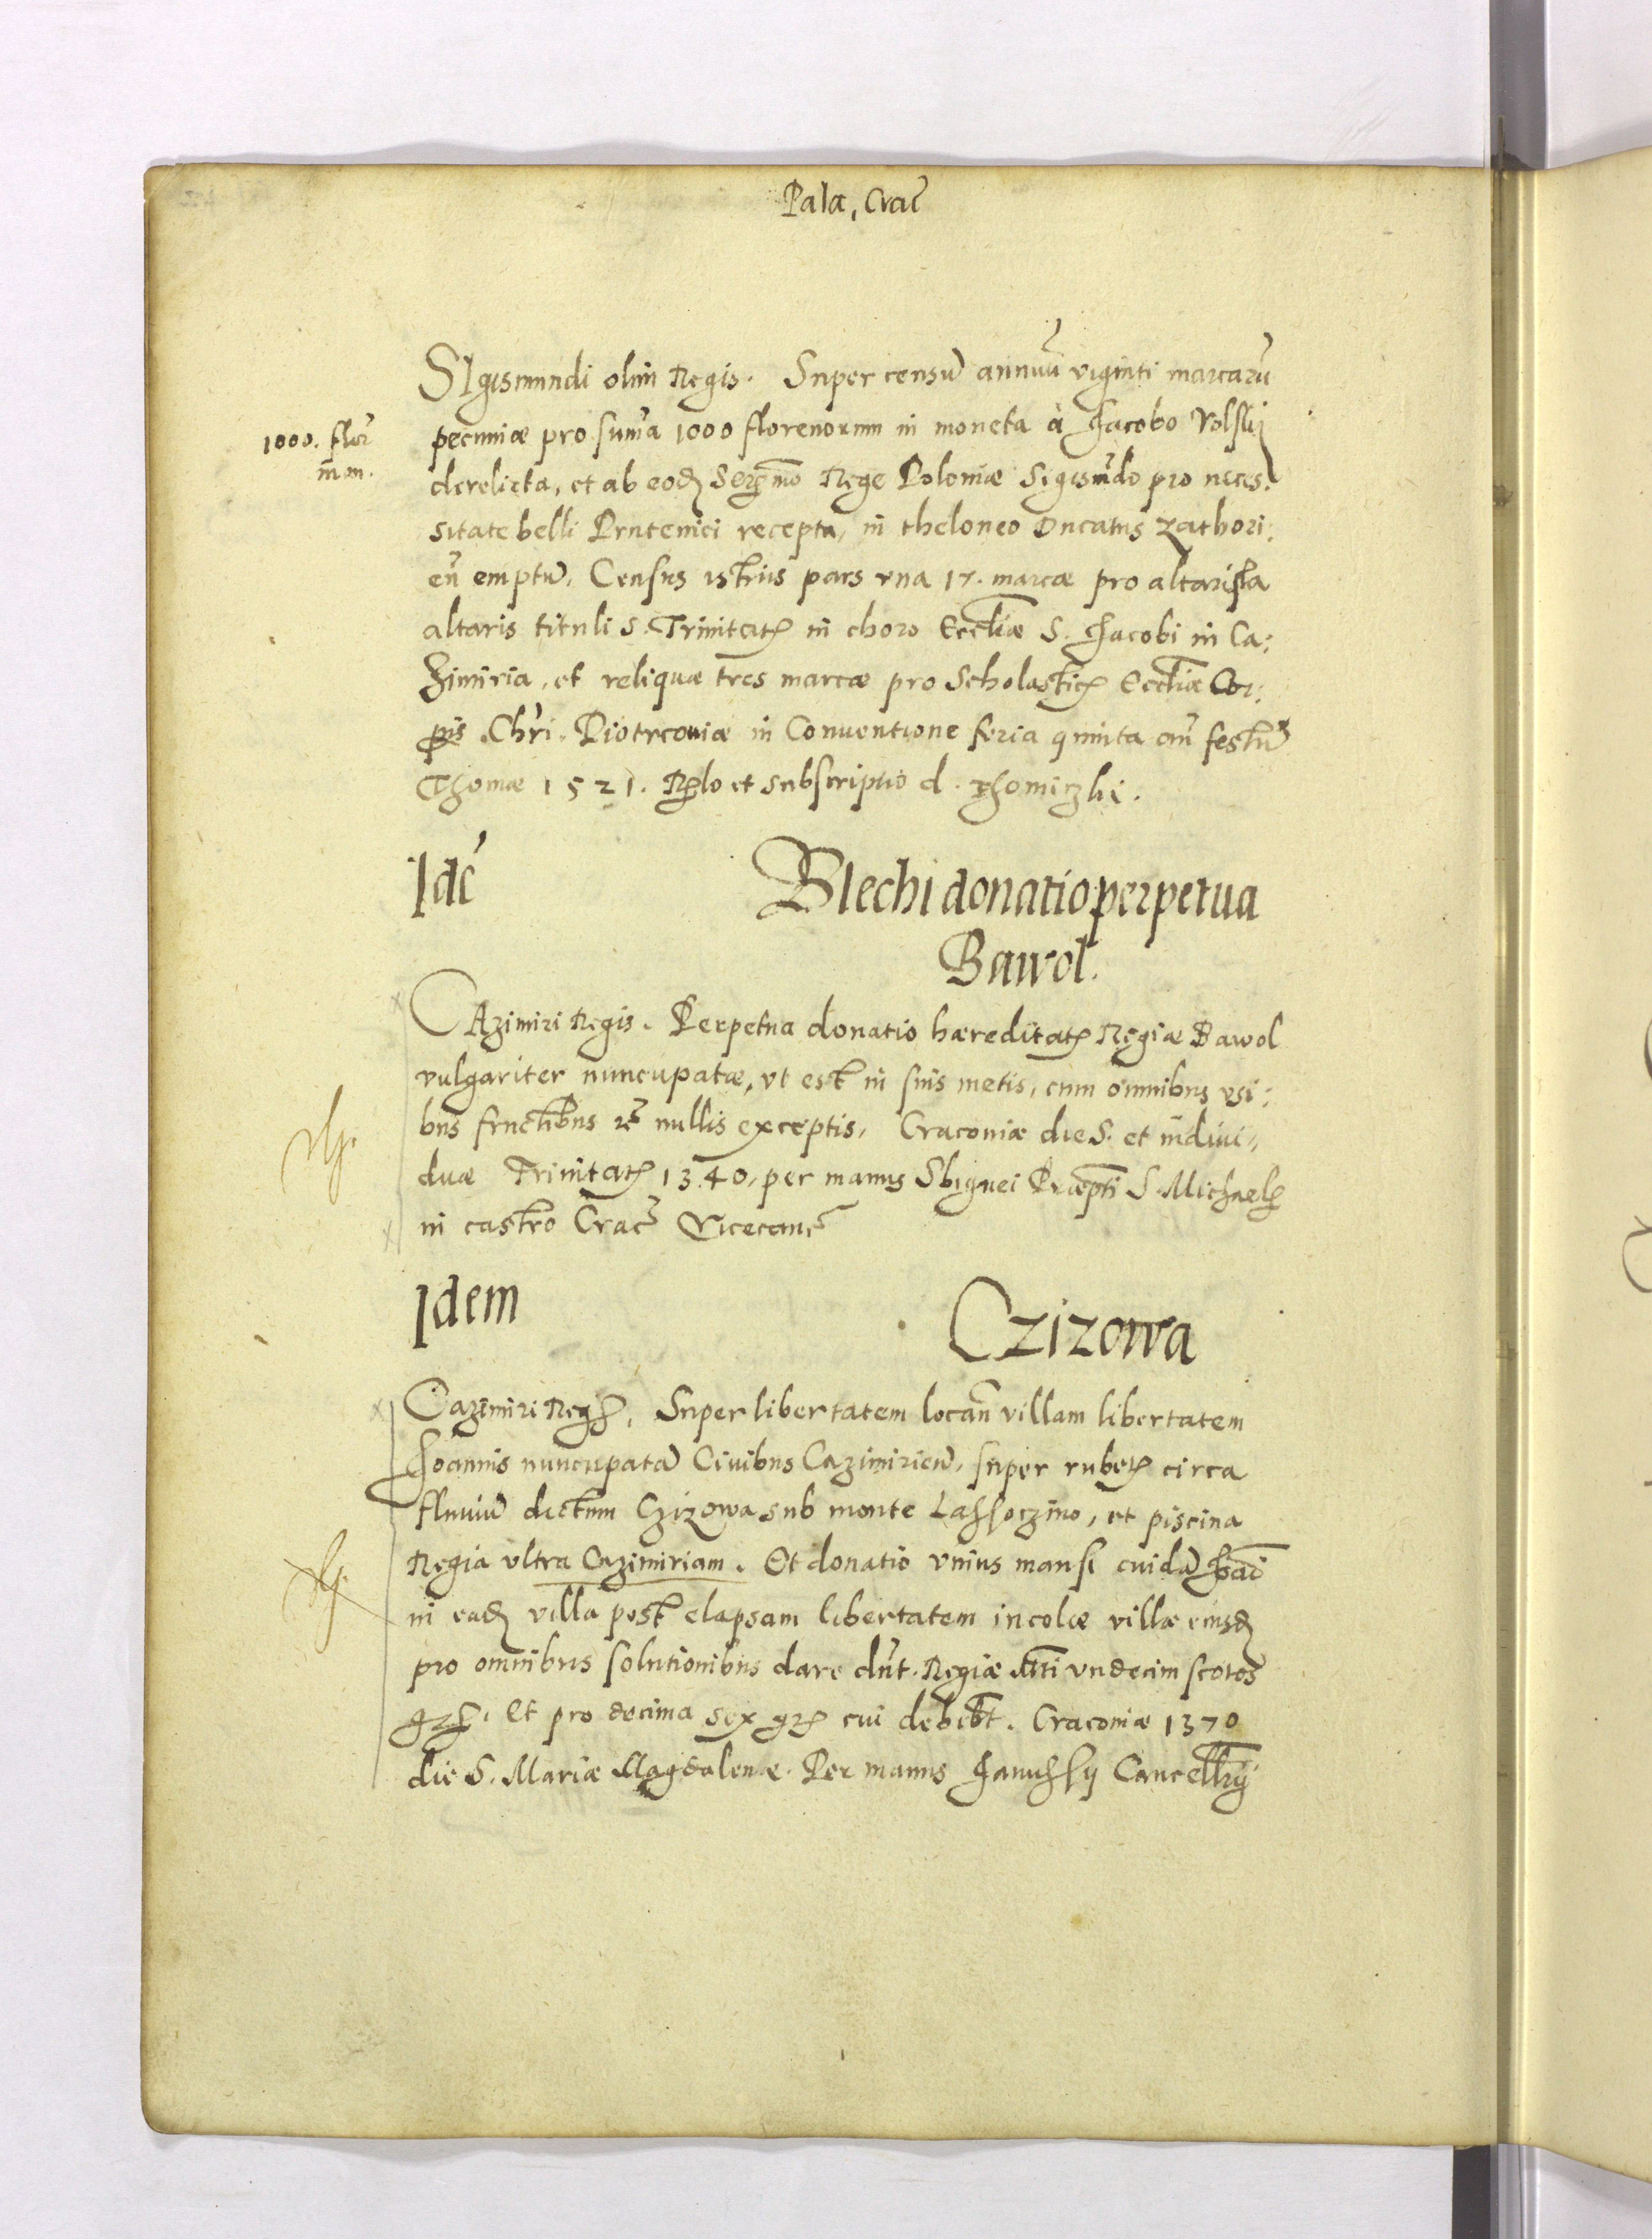 Palae, Crac̃
SIgismundi olim Regis. Super censũ annuũ viginti marcarũ
1000. flor̃
m̃ on.
pecuniæ pro sum̃a 1000 florenorum in moneta à Jacobo Volski
derelicta, et ab eodẽ Serẽmo Rege Poloniæ Sigismũdo pro neces:
sitate belli Prutenici recepta, in theloneo Ducatus Zathori:
eñ emptũ, Census istius pars vna 17. marcæ pro altarista
altaris tituli S. Trinitatis in choro Eccliæ S. Jacobi in Ca:
zimiria, et reliquæ tres marcæ pro Scholastico Eccliæ Cor:
pis Chr̃i. Piotrcouiæ in Conuentione feria quinta añ festũ
Thomæ 1521. Rẽlo et subscriptio d. Thomiczki.
Idẽ Blechi donatio perpetua
Bawol.
CAzimiri Regis. Perpetua donatio hæreditatis Regiæ Bawol
vulgariter nuncupatæ, vt est in suis metis, cum omnibus vsi:
bus fructibus et̃ nullis exceptis, Cracouiæ die S. et indiui,,
duæ Trinitatis 1340, per manus Sbignei Præpti S. Michaelis
in castro Crac̃ Vicecanc̃
Idem Czizowa
Cazimiri Regis, Super libertatem locañ villam libertatem
Joannis nuncupatã Ciuibus Cazimirieñ, super rubetis circa
fluuiũ dictum Czizowa sub monte Lassoczino, et piscina
Regia vltra Cazimiriam. Et donatio vnius mansi cuidã
in eadẽ villa post elapsam libertatem incolæ villæ eiusdẽ
pro omnibus solutionibus dare dñt. Regiæ Mti vndecim scotos
gr̃s. Et pro decima sex gr̃s cui debebt. Cracouiæ 1370
die S. Mariæ Magdalenæ. Per manus Janussij Cancellrij